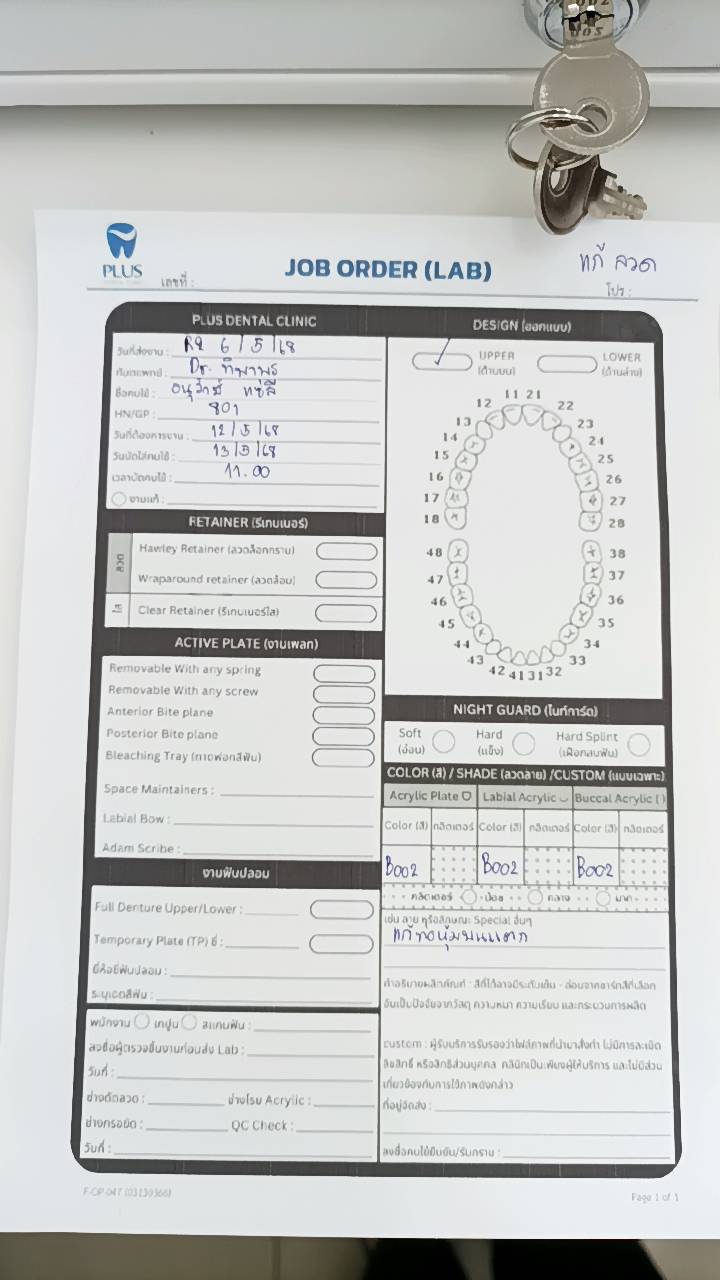 002
PLUS
เลขที่ :
JOB ORDER (LAB)
แก้ ลวด
โปร :
PLUS DENTAL CLINIC
วันที่ส่งงาน : R2 6/5/68
ทันตแพทย์ : Dr. ทิพาพร
ชื่อคนไข้ :
HN/GP : 801
วันที่ต้องการงาน : 12/5/68
วันนัดใส่คนไข้ : 13/5/68
เวลานัดคนไข้ : 11.00
งานแก้ :
RETAINER (รีเทนเนอร์)
ลวด
Hawley Retainer (ลวดล็อกกราม)
Wraparound retainer (ลวดล้อม)
ใส
Clear Retainer (รีเทนเนอร์ใส)
ACTIVE PLATE (งานเพลท)
Removable With any spring
Removable With any screw
Anterior Bite plane
Posterior Bite plane
Bleaching Tray (ถาดฟอกสีฟัน)
Space Maintainers :
Labial Bow :
Adam Scribe :
งานฟันปลอม
Full Denture Upper/Lower :
Temporary Plate (TP) ซี่ :
ยี่ห้อซี่ฟันปลอม :
ระบุเฉดสีฟัน :
พนักงาน เทปูน สแกนฟัน :
ลงชื่อผู้ตรวจชิ้นงานก่อนส่ง Lab :
วันที่ :
ช่างดัดลวด : ช่างโรย Acrylic :
ช่างกรอขัด : QC Check :
วันที่ :
DESIGN (ออกแบบ)
UPPER
(ด้านบน)
LOWER
(ด้านล่าง)
11 21
12 22
13 23
14 24
15 25
16 26
17 27
18 28
48 38
47 37
46 36
45 35
44 34
43 33
42 41 31 32
NIGHT GUARD (ไนท์การ์ด)
Soft
(อ่อน)
Hard
(แข็ง)
Hard Splint
(เฝือกสบฟัน)
COLOR (สี) / SHADE (ลวดลาย) /CUSTOM (แบบเฉพาะ)
Acrylic Plate Labial Acrylic Buccal Acrylic ( )
Color (สี) กลิตเตอร์ Color (สี) กลิตเตอร์ Color (สี) กลิตเตอร์
B002 B002 B002
กลิตเตอร์ น้อย กลาง มาก
เช่น ลาย หรือลักษณะ Special อื่นๆ
คำอธิบายผลิตภัณฑ์ : สีที่ได้อาจมีระดับเข้ม - อ่อนจากชาร์ทสีที่เลือก
อันเป็นปัจจัยจากวัสดุ ความหนา ความเรียบ และกระบวนการผลิต
custom : ผู้รับบริการรับรองว่าไฟล์ภาพที่นำมาสั่งทำ ไม่มีการละเมิด
ลิขสิทธิ์ หรือสิทธิส่วนบุคคล คลินิกเป็นเพียงผู้ให้บริการ และไม่มีส่วน
เกี่ยวข้องกับการใช้ภาพดังกล่าว
ที่อยู่จัดส่ง :
ลงชื่อคนไข้ยืนยัน/รับทราบ :
Page 1 of 1